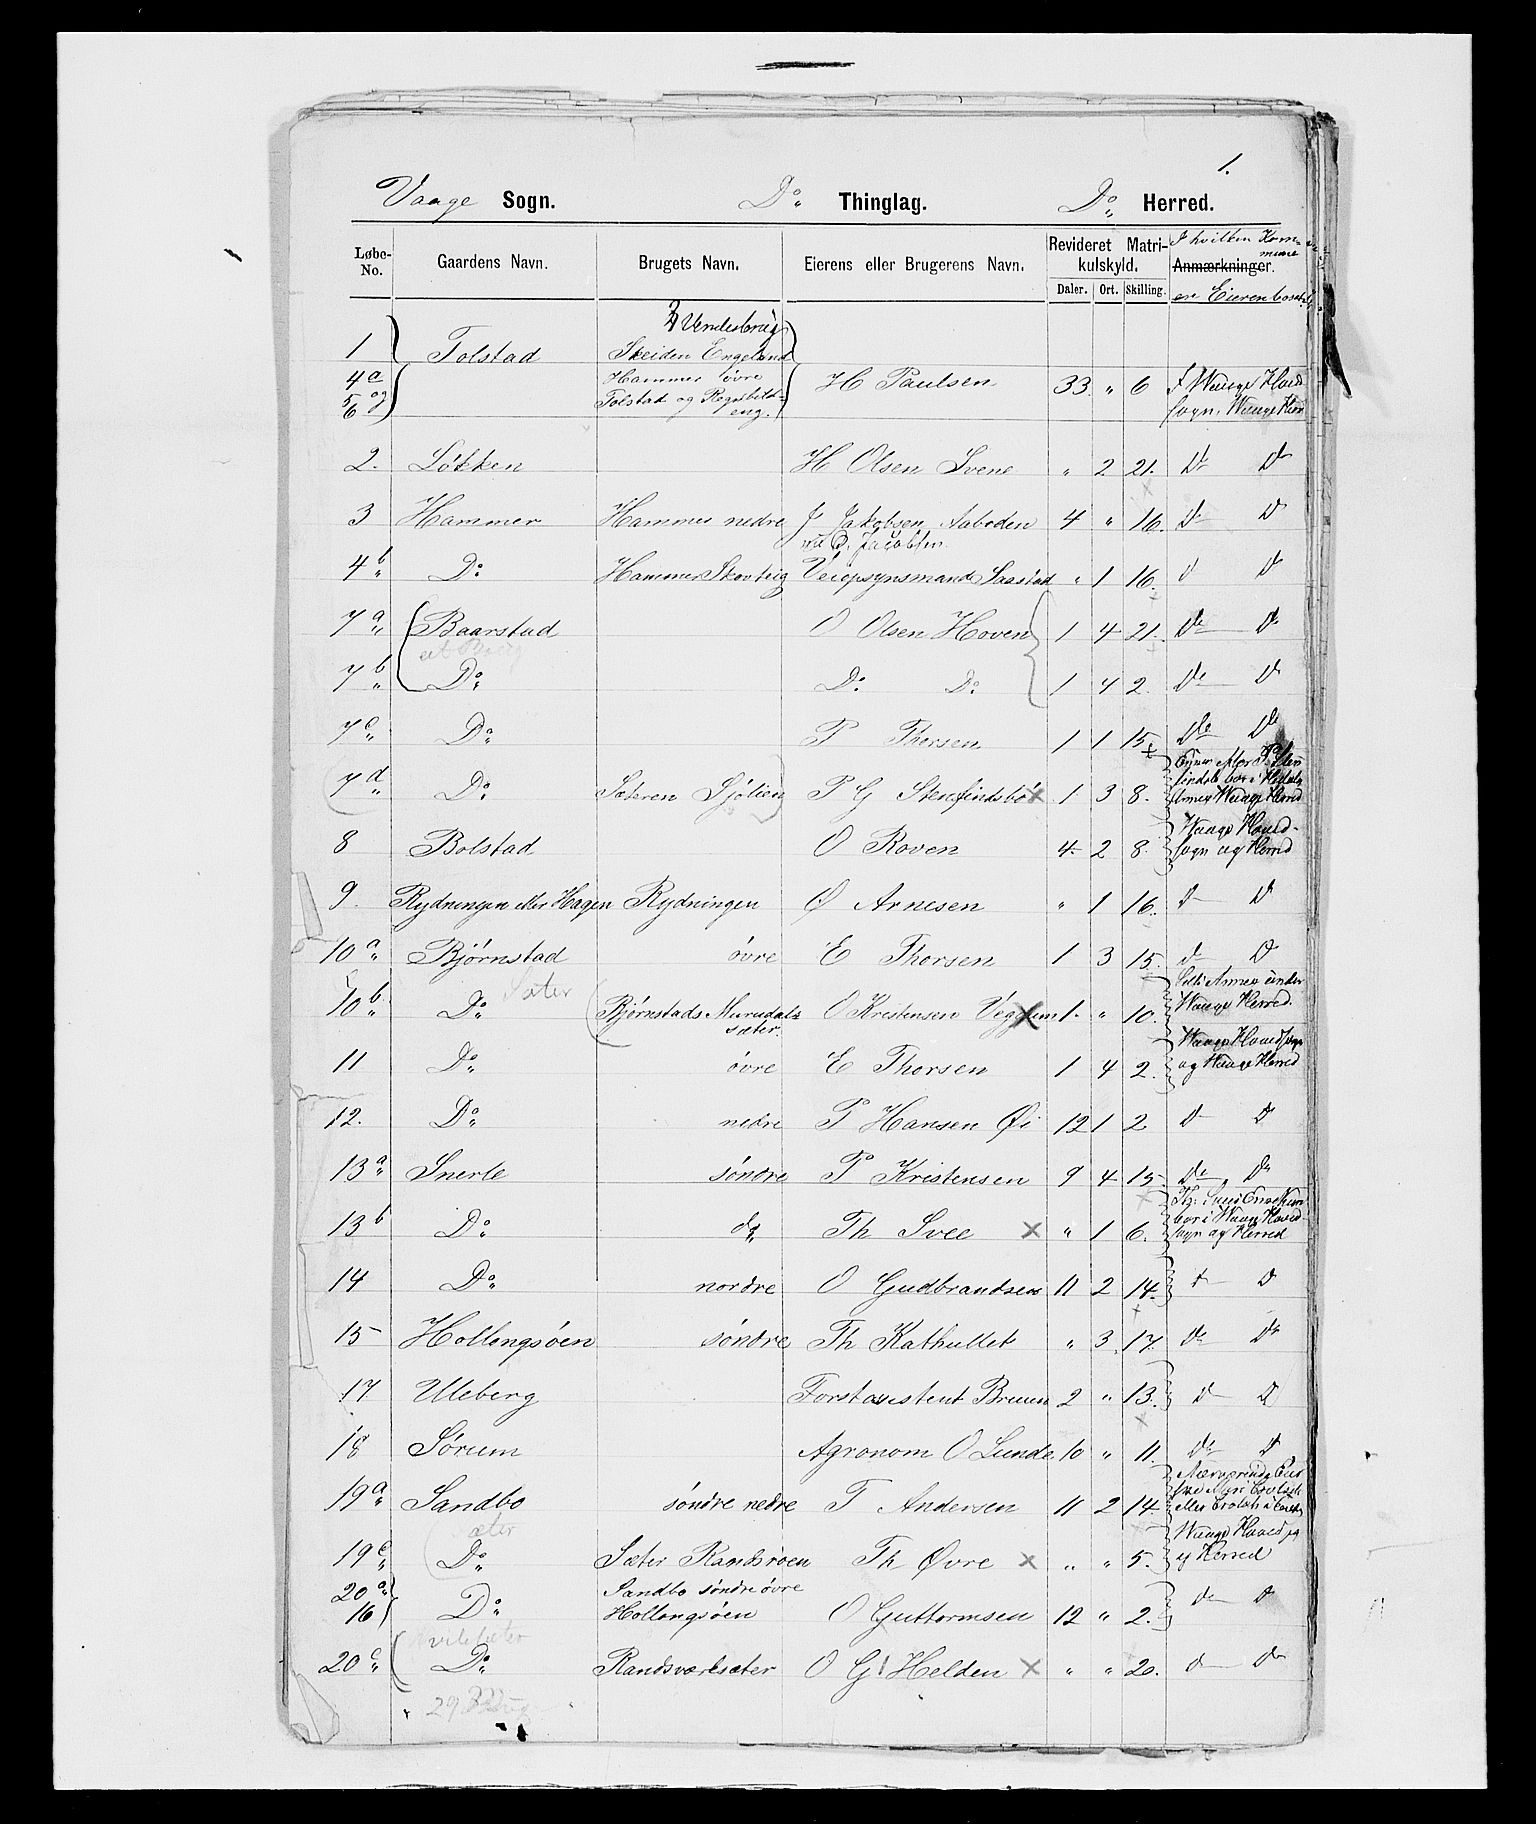 1.
Vaage Sogn. Do Thinglag. Do Herred.
Løbe-No. Gaardens Navn. Brugets Navn. Eierens eller Brugerens Navn. Revideret Matrikulskyld. Daler. Ort. Skilling. Anmærkninger. I hvilken Kommune er Eieren bosat
1 Tolstad Skeiden Engeland
4a 5 og 6 Hammer øvre Tolstad og eng. H Paulsen 33 " 6
2. Løkken H Olsen Svene " 2 21. Do Do
3 Hammer Hammer nedre J Jakobsen Aaboden 4 " 16. Do Do
4b Do Hammer Skovteig Veiopsynsmand Saastad " 1 16. Do
7a Baarstad O Olsen Hoven 1 4 21. Do Do
7b Do Do Do 1 4 2. Do Do
7c Do P Thorsen 1 1 15. Do Do
7d Do Sæteren Sjølien P G Stenfindsbø x 1 3 8.
8 Bolstad O Roven 4 2 8. Vaage Hovedsogn og Herred
9. Rydningen eller Hagen Rydningen Ø Arnesen " 1 16. Do Do
10a Bjørnstad øvre E Thorsen 1 3 15. Do Do
10b Do Sæter Bjørnstads Murudalssæter. O Kristensen Veggem x 1 " 10. Anmex under Vaage Herred.
11 Do øvre E Thorsen 1 4 2. Vaage Hovedsogn og Vaage Herred
12. Do nedre P Hansen Øi 12 1 2 Do Do
13a Snerle søndre P Kristensen 9 4 15. Do Do
13b Do do Th Svee x " 1 6. bor i Vaage Hovedsogn og Herred
14 Do nordre O Gudbrandsen 11 2 14. Do Do
15 Hollongsøen søndre Th Kathullet " 3 17. Do Do
17 Uleberg Forstassistent Bruun 2 " 13. Do Do
18 Sørum Agronom O Lunde 10 " 11. Do Do
19a Sandbo søndre nedre T Andersen 11 2 14.
19c Do sæter Sæter Randsroen Th Øvre x " " 5. Vaage Hovedsogn og Herred
20a 16 Do Sandbo søndre øvre Hollongsøen O Guttormsen 12 " 2. Do Do
20c Do Randsværksæter O G Helden x " " 20. Do Do
29